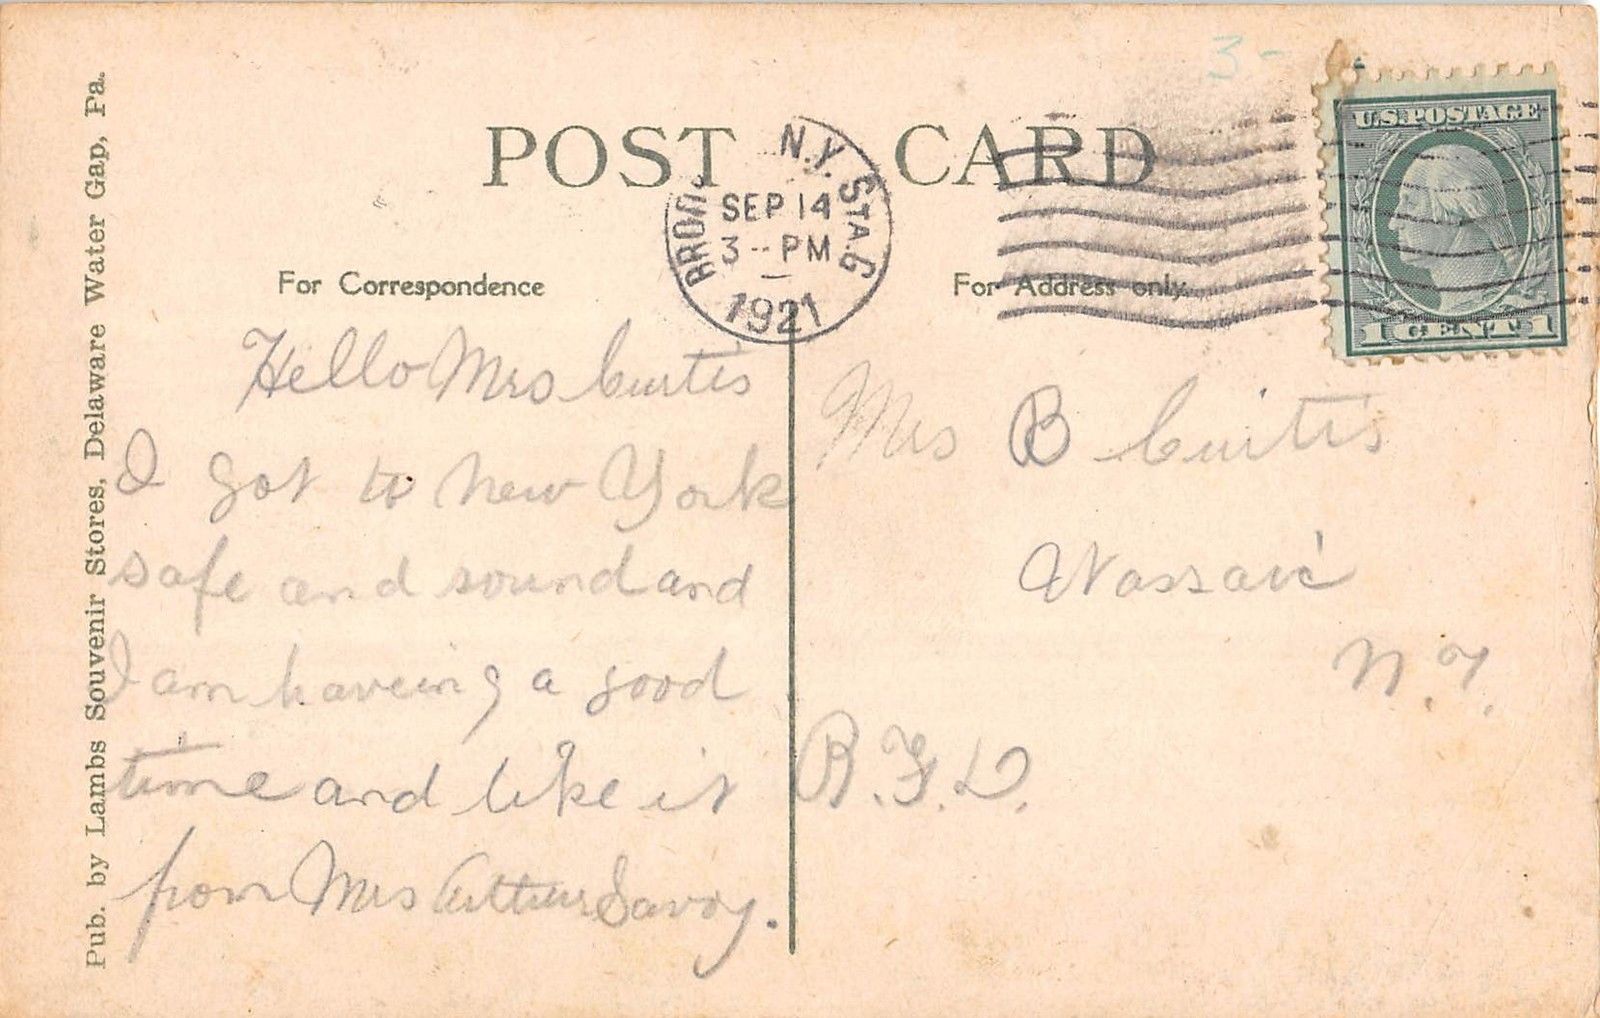 3-
POST CARD
BROOKLYN N.Y. STA. G
SEP 14
3--PM
1921
U.S. POSTAGE
1 CENT 1
For Correspondence
For Address only.
Hello Mrs Curtis
I got to New York
safe and sound and
I am haveing a good
time and like it
from Mrs Arthur Savoy.
Mrs B Curtis
Wassaic
N.Y.
R.F.D.
Pub. by Lambs Souvenir Stores, Delaware Water Gap, Pa.